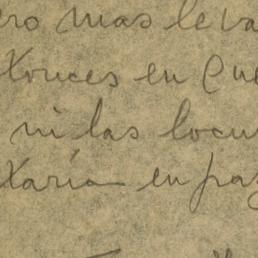 ro mas leva
tonces en Cue
ni las locu
taría en paz